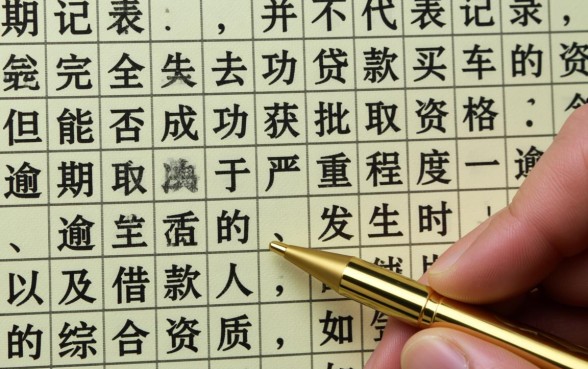 期记表．，并不代表记录，
完全失去功贷款买车的资
但能否成功获批取资格：
逾期取于严重程度一逾
、逾的、发生时
以及借款人，
的综合资质，如